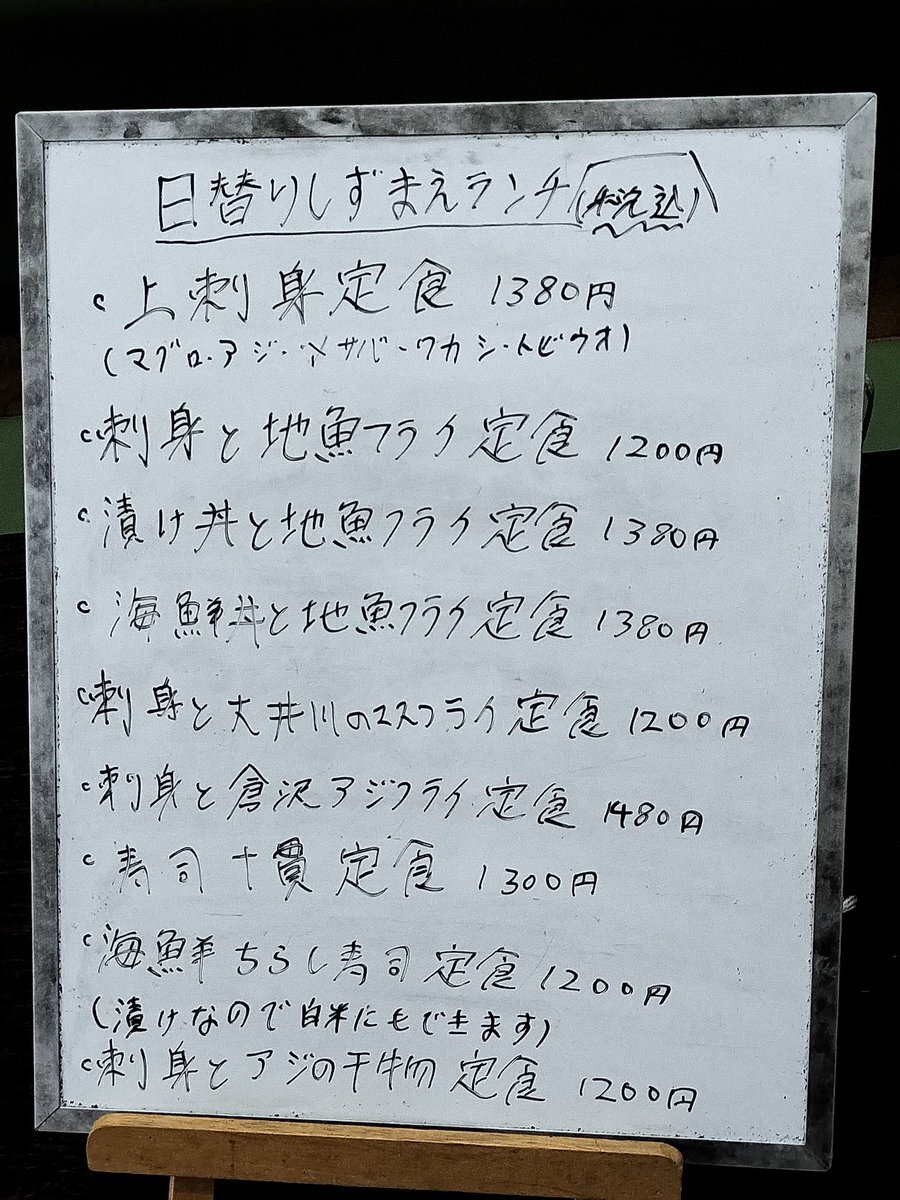 日替りしずまえランチ(税込)
・上刺身定食 1380円
(マグロ・アジ・〆サバ・ワカシ・トビウオ)
・刺身と地魚フライ定食 1200円
・漬け丼と地魚フライ定食 1380円
・海鮮丼と地魚フライ定食 1380円
・刺身と大井川のススフライ定食 1200円
・刺身と倉沢アジフライ定食 1480円
・寿司十貫定食 1300円
・海鮮ちらし寿司定食 1200円
(漬けなので白米にもできます)
・刺身とアジの干物定食 1200円